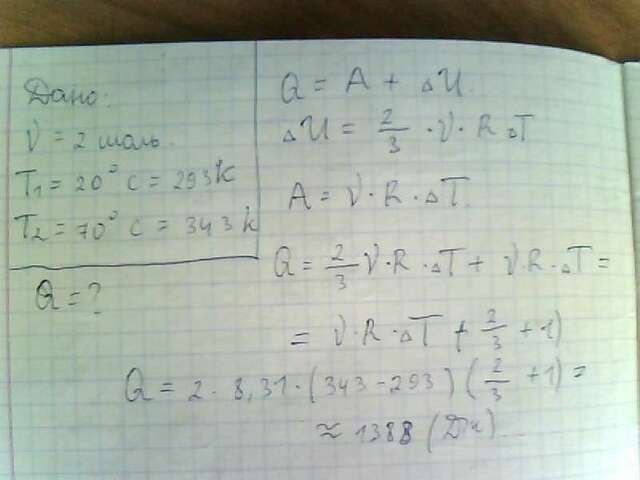 Дано:
ν = 2 моль.
T₁ = 20° C = 293 K
T₂ = 70° C = 343 K
Q = ?
Q = A + ΔU.
ΔU = 2/3 · ν · R ΔT
A = ν · R · ΔT.
Q = 2/3 ν · R · ΔT + ν R · ΔT =
= ν · R · ΔT ( 2/3 + 1)
Q = 2 · 8,31 · (343 - 293) ( 2/3 + 1) =
≈ 1388 (Дж)...